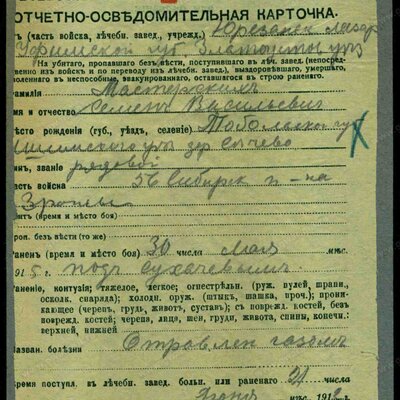 ОТЧЕТНО-ОСВѢДОМИТЕЛЬНАЯ КАРТОЧКА.
(часть войска, лѣчебн. завед., учрежд.) Юрезань лазар
Уфимской губ. Златоуст. у.
На убитаго, пропавшаго безъ вѣсти, поступившаго въ лѣч. завед. (непосред-
енно изъ войскъ и по переводу изъ лѣчебн. завед.), выздоровѣвшаго, умершаго,
оленнаго въ неспособные, эвакуированнаго, оставшагося въ строю раненаго.
амилія Мастерскихъ
мя и отчество Семенъ Васильевич
ѣсто рожденія (губ., уѣздъ, селеніе) Тобольской губ
Ишимского у. дер
ин, званіе рядовой
асть войска 56 Сибирск п-на
итъ (время и мѣсто боя)
роп. безъ вѣсти (то же)
аненъ (время и мѣсто боя) 30 числа Мая мѣс.
915 г. подъ Сухачевымъ
аненіе, контузія: тяжелое, легкое; огнестрѣльн. (руж. пулей, шрапн.,
осколк. снаряда); холодн. оруж. (штык., шашка, проч.); проник-
кающее (череп., грудь, живот., суставъ); съ поврежд. костей, безъ
поврежд. костей; черепа, лица, шеи, груди, живота, спины, конечн.:
верхней, нижней
Назван. болѣзни Отравленъ газомъ
ремя поступл. въ лѣчебн. завед. больн. или раненаго 21 числа
мѣс. 191